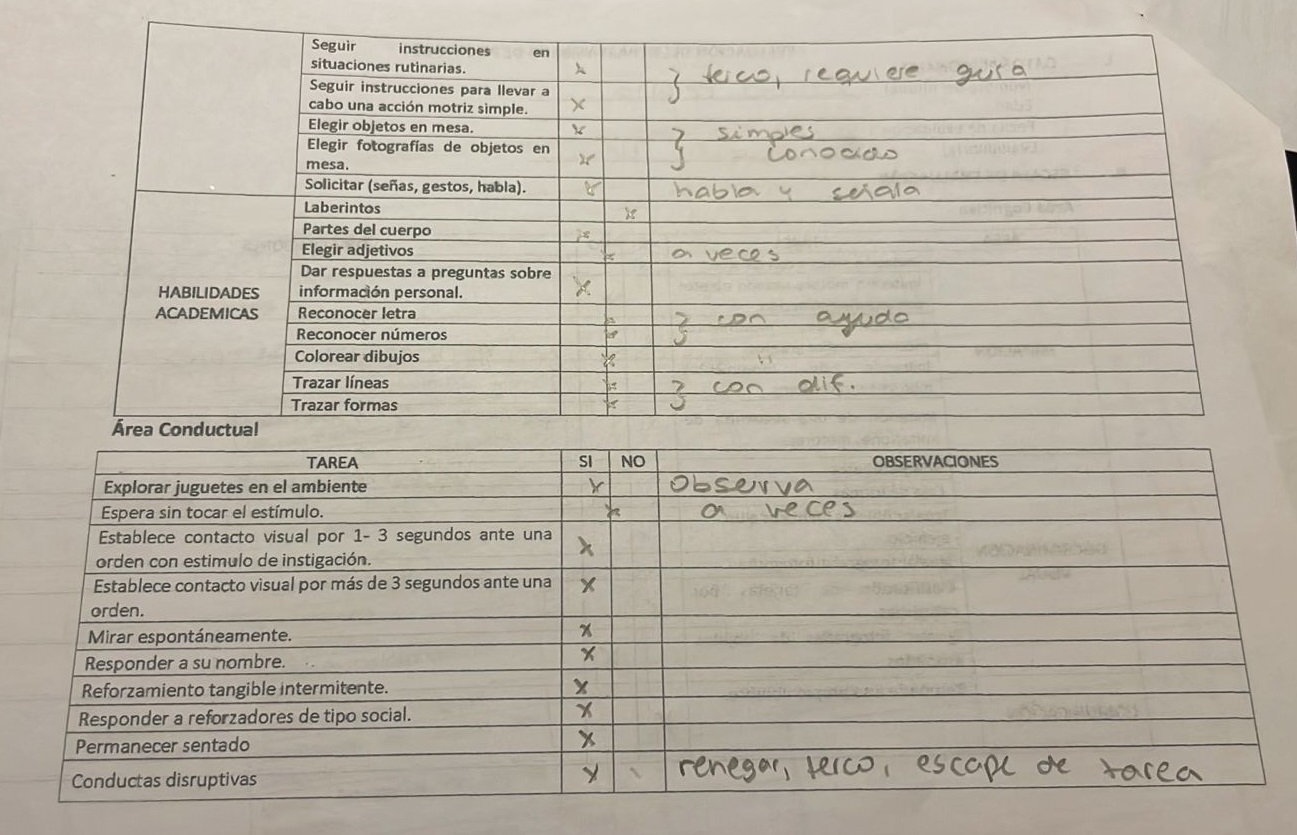 Seguir instrucciones en
situaciones rutinarias. x
Seguir instrucciones para llevar a
cabo una acción motriz simple. x } terco, requiere guía
Elegir objetos en mesa. x } simples
Elegir fotografías de objetos en
mesa. x } conocido
Solicitar (señas, gestos, habla). x habla y señala
HABILIDADES
ACADEMICAS
Laberintos x
Partes del cuerpo x
Elegir adjetivos x a veces
Dar respuestas a preguntas sobre
información personal. x
Reconocer letra x
Reconocer números x } con ayuda
Colorear dibujos x "
Trazar líneas x
Trazar formas x } con dif.
Área Conductual
TAREA SI NO OBSERVACIONES
Explorar juguetes en el ambiente x Observa
Espera sin tocar el estímulo. x a veces
Establece contacto visual por 1- 3 segundos ante una
orden con estimulo de instigación. x
Establece contacto visual por más de 3 segundos ante una
orden. x
Mirar espontáneamente. x
Responder a su nombre. x
Reforzamiento tangible intermitente. x
Responder a reforzadores de tipo social. x
Permanecer sentado x
Conductas disruptivas x renegar, terco, escape de tarea